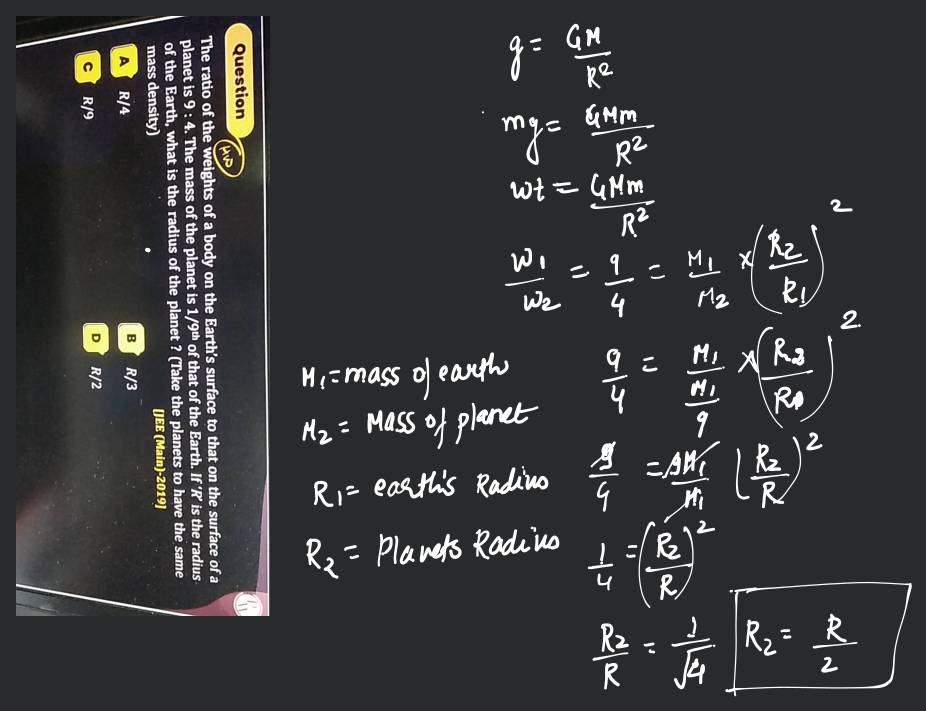 Question
H.W
The ratio of the weights of a body on the Earth's surface to that on the surface of a
planet is 9 : 4. The mass of the planet is 1/9th of that of the Earth. If 'R' is the radius
of the Earth, what is the radius of the planet ? (Take the planets to have the same
mass density)
[JEE (Main)-2019]
A R/4
B R/3
C R/9
D R/2
g = GM/R²
mg = GMm/R²
wt = GMm/R²
W₁/W₂ = 9/4 = M₁/M₂ × (R₂/R₁)²
M₁ = mass of earth
M₂ = Mass of planet
R₁ = earth's Radius
R₂ = Planets Radius
9/4 = M₁/(M₁/9) × (R₂/R)²
9/4 = 9M₁/M₁ (R₂/R)²
1/4 = (R₂/R)²
R₂/R = 1/√4
R₂ = R/2